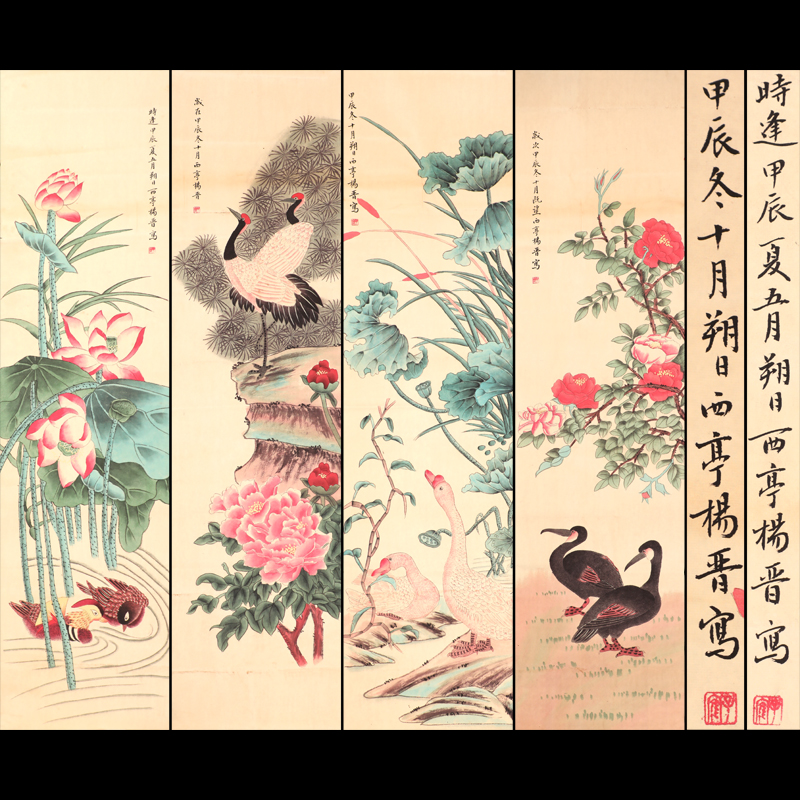 時逢甲辰夏五月朔日西亭楊晉寫
歲在甲辰冬十月西亭楊晉
甲辰冬十月朔日西亭楊晉寫
歲次甲辰冬十月既望西亭楊晉寫
甲辰冬十月朔日西亭楊晉寫
時逢甲辰夏五月朔日西亭楊晉寫